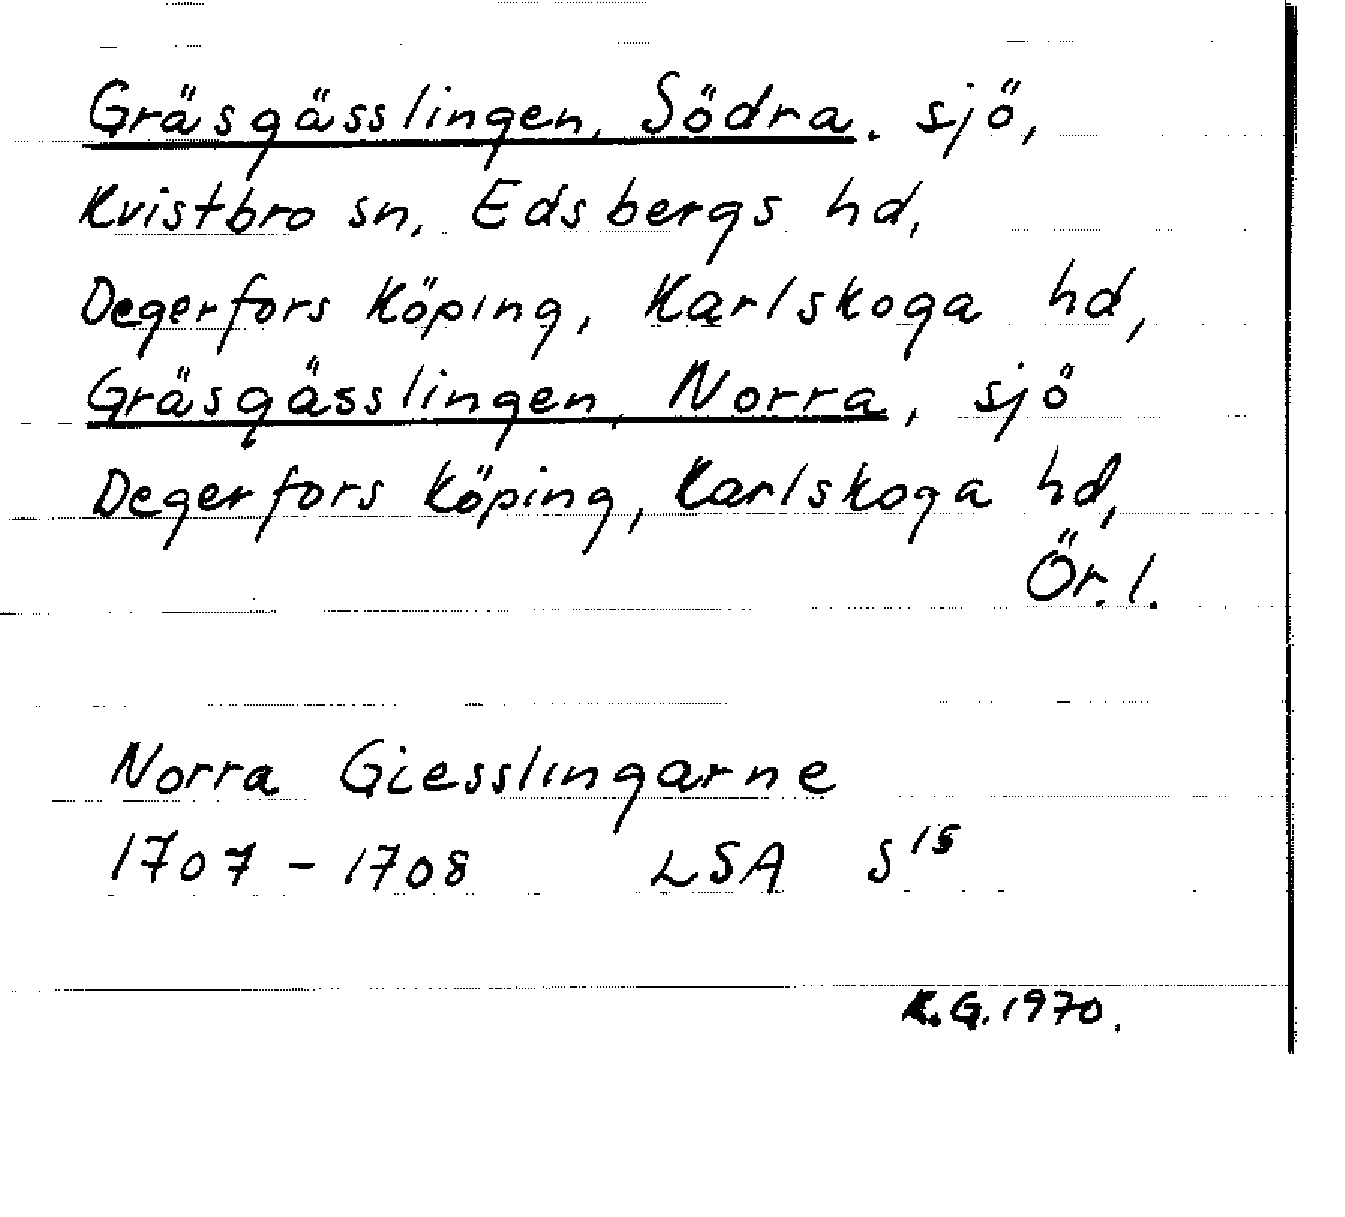 Gräsgässlingen, Södra. sjö,
Kvistbro sn, Edsbergs hd,
Degerfors köping, Karlskoga hd,
Gräsgässlingen, Norra, sjö
Degerfors köping, Karlskoga hd,
Ör. l.
Norra Giesslingarne
1707 - 1708 LSA S 15
K.G. 1970.